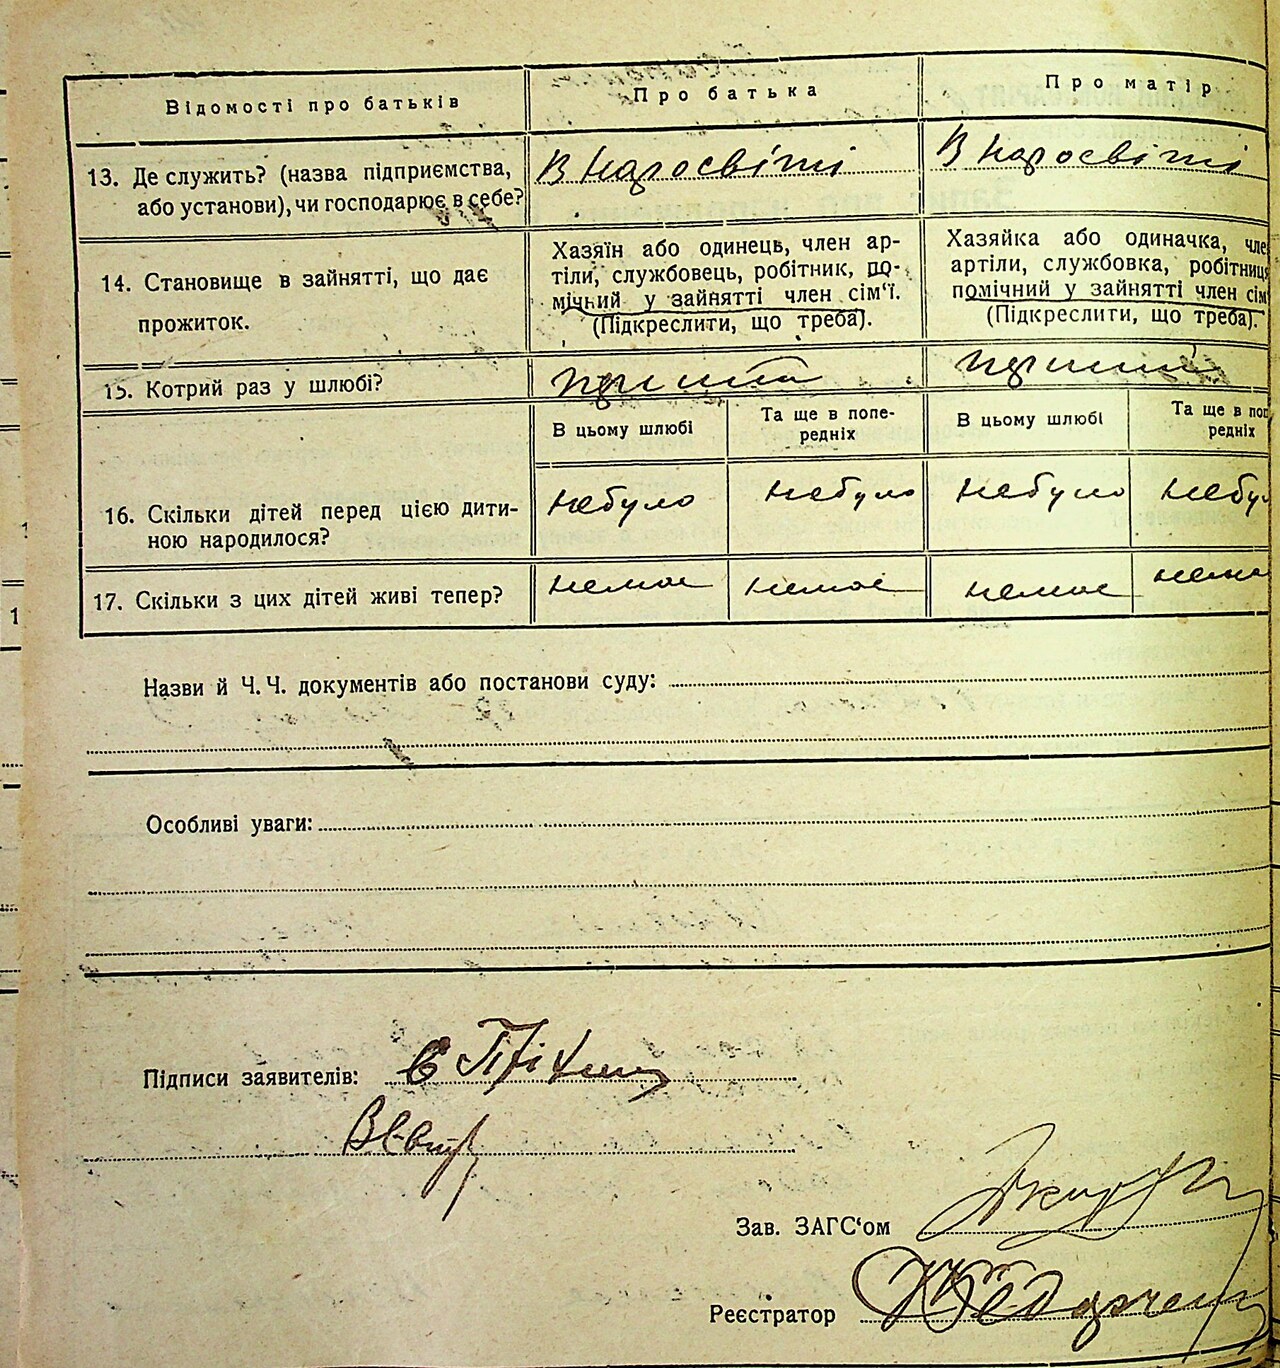 Відомості про батьків
Про батька
Про матір
13. Де служить? (назва підприємства,
або установи), чи господарює в себе?
В Наросвіті
В Наросвіті
14. Становище в зайнятті, що дає
прожиток.
Хазяїн або одинець, член ар-
тіли, службовець, робітник, по-
мічний у зайнятті член сім'ї.
(Підкреслити, що треба).
Хазяйка або одиначка, чле
артіли, службовка, робітниця
помічний у зайнятті член сім'
(Підкреслити, що треба).
15. Котрий раз у шлюбі?
В цьому шлюбі
Та ще в попе-
редніх
В цьому шлюбі
Та ще в поп
редніх
16. Скільки дітей перед цією дити-
ною народилося?
небуло
небуло
небуло
небул
17. Скільки з цих дітей живі тепер?
немає
немає
немає
нема
Назви й Ч.Ч. документів або постанови суду:
Особливі уваги:
Підписи заявителів:
Зав. ЗАГС'ом
Реєстратор